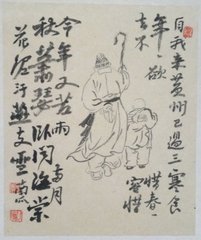 自我来黄州已过三寒食
年〻欲
惜春〻
去不
容惜
今年又苦雨两月
秋蕭瑟卧闻海棠
花泥汙燕支雪